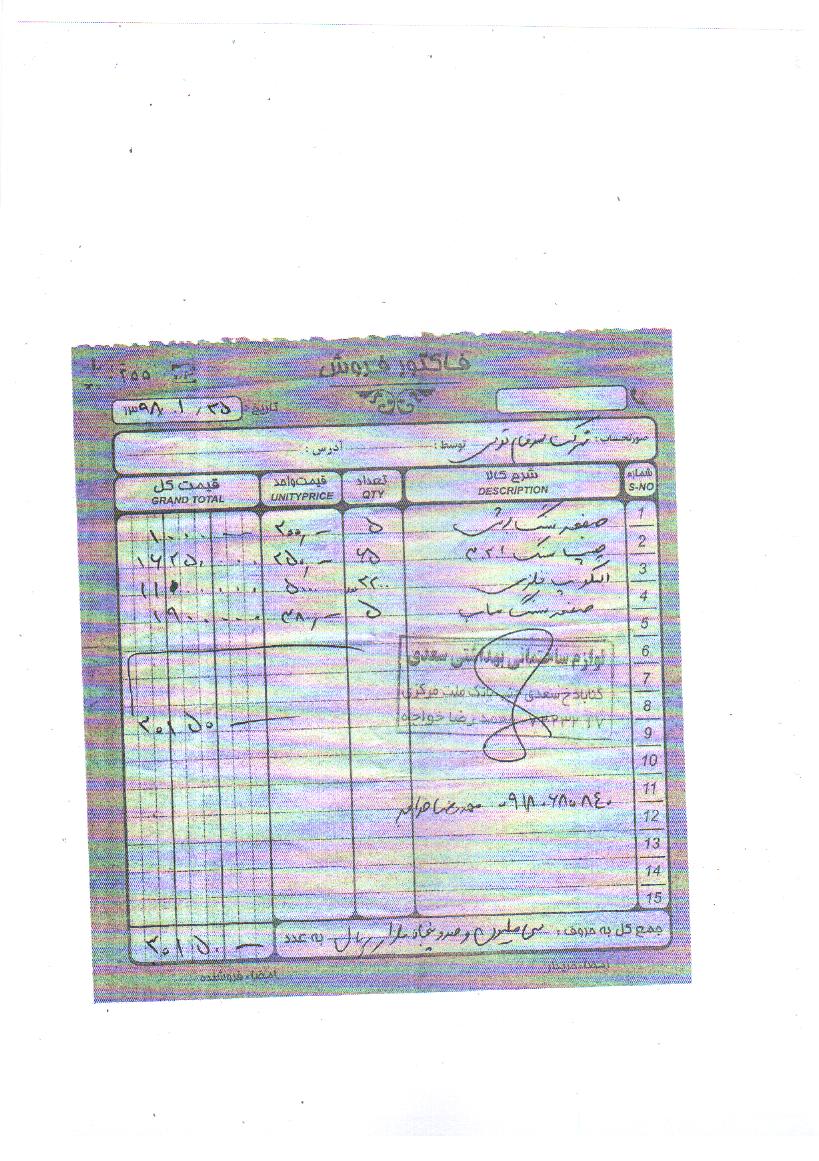 فاکتور فروش
۲۵۵
تاریخ: ۱۳۹۸/۱/۲۵
صورتحساب: شرکت توسط: آدرس:
شماره S-NO شرح کالا DESCRIPTION تعداد QTY قیمت واحد UNITYPRICE قیمت کل GRAND TOTAL
1 صفحه سنگ ۵ ۲۰۰۰۰۰ ۱۰۰۰۰۰۰
2 چسب سنگ ۶۵ ۲۵۰۰۰۰ ۱۶۲۵۰۰۰۰
3 اسکوپ فلزی ۲۲۰۰ ۵۰۰۰ ۱۱۰۰۰۰۰۰
4 صفحه سنگ ساب ۵ ۳۸۰۰۰۰ ۱۹۰۰۰۰۰
5
6 لوازم ساختمانی بهداشتی سعدی
7 گناباد خ سعدی بانک ملت مرکزی
8 محمد رضا خواجه
۳۰۱۵۰ —
9
10
11
۰۹۱۸۰۶۸۰۸۴۰
12
13
14
15
جمع کل به حروف: سی میلیون و صد و پنجاه هزار ریال به عدد ۳۰۱۵۰ —
امضاء خریدار امضاء فروشنده